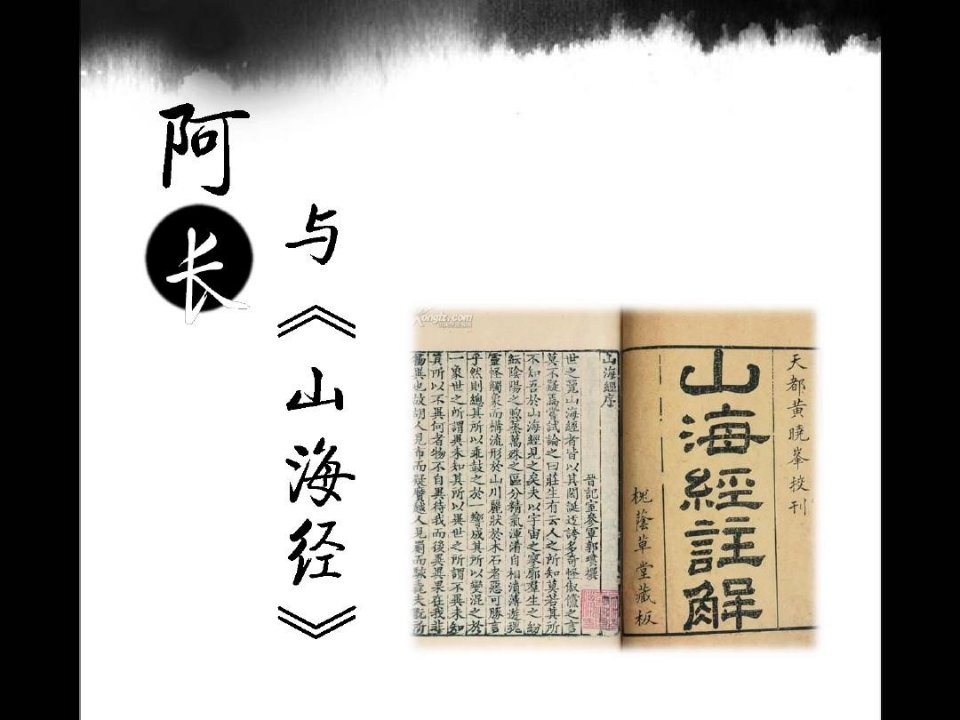 阿长
与《山海经》
天都黄曉峯挍刊
山海經註解
槐蔭草堂藏板
山海經序
晉記室參軍郭璞撰
世之覽山海經者皆以其閎誕迂誇多奇怪俶儻之言
莫不疑焉嘗試論之曰莊生有云人之所知莫若其所
不知吾於山海經見之矣夫以宇宙之寥廓群生之紛
紜陰陽之煦蒸萬殊之區分精氣渾淆自相濆薄遊魂
靈怪觸象而構流形於山川麗狀於木石者惡可勝言
乎然則總其所以乖鼓之於一響成其所以變混之於
一象世之所謂異未知其所以異世之所謂不異未知
其所以不異何者物不自異待我而後異異果在我非
物異也故胡人見布而疑黂越人見罽而駭毳夫